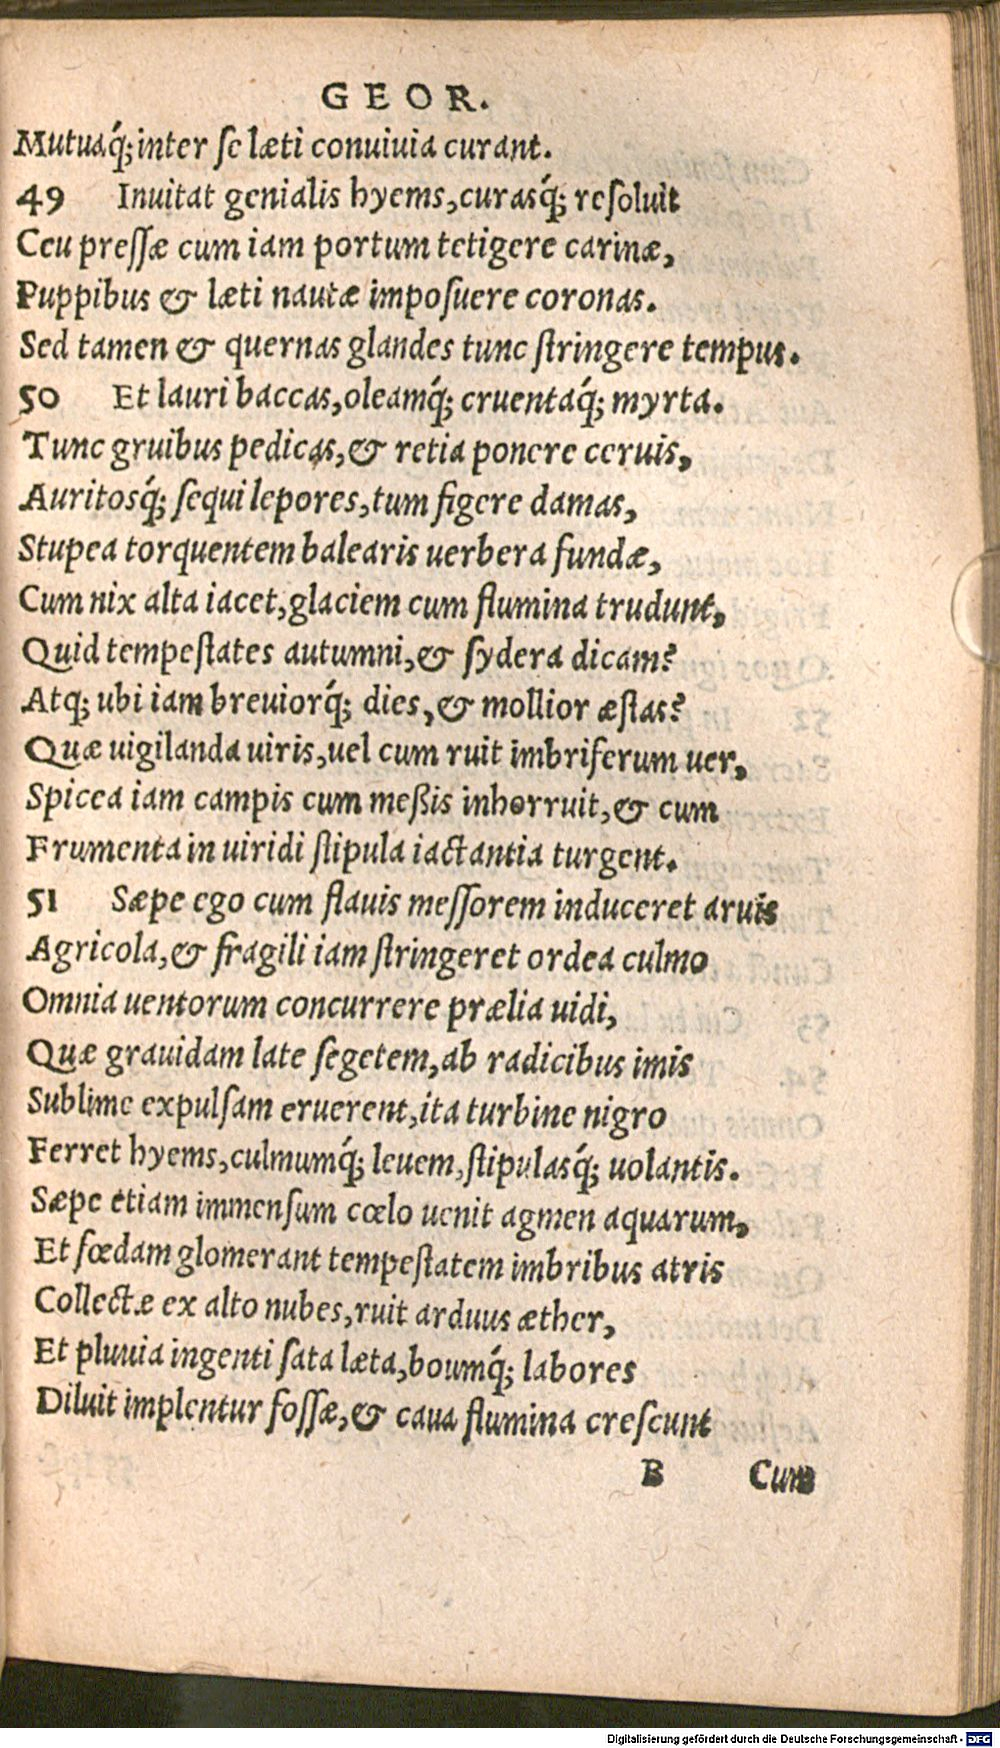 GEOR.
Mutuaq́; inter ſe læti conuiuia curant.
49 Inuitat genialis hyems, curasq́; reſoluit
Ceu preſſæ cum iam portum tetigere carinæ,
Puppibus & læti nautæ impoſuere coronas.
Sed tamen & quernas glandes tunc ſtringere tempus.
50 Et lauri baccas, oleamq́; cruentaq́; myrta.
Tunc gruibus pedicas, & retia ponere ceruis,
Auritosq́; ſequi lepores, tum figere damas,
Stupea torquentem balearis uerbera fundæ,
Cum nix alta iacet, glaciem cum flumina trudunt,
Quid tempeſtates autumni, & ſydera dicam?
Atq; ubi iam breuiorq́; dies, & mollior æſtas?
Quæ uigilanda uiris, uel cum ruit imbriferum uer,
Spicea iam campis cum meßis inhorruit, & cum
Frumenta in uiridi ſtipula iactantia turgent.
51 Sæpe ego cum flauis meſſorem induceret aruis
Agricola, & fragili iam ſtringeret ordea culmo
Omnia uentorum concurrere prælia uidi,
Quæ grauidam late ſegetem, ab radicibus imis
Sublime expulſam eruerent, ita turbine nigro
Ferret hyems, culmumq́; leuem, ſtipulasq́; uolantis.
Sæpe etiam immenſum cœlo uenit agmen aquarum,
Et fœdam glomerant tempeſtatem imbribus atris
Collectæ ex alto nubes, ruit arduus æther,
Et pluuia ingenti ſata læta, boumq́; labores
Diluit implentur foſſæ, & caua flumina creſcunt
B Cum
Digitalisierung gefördert durch die Deutsche Forschungsgemeinschaft - DFG